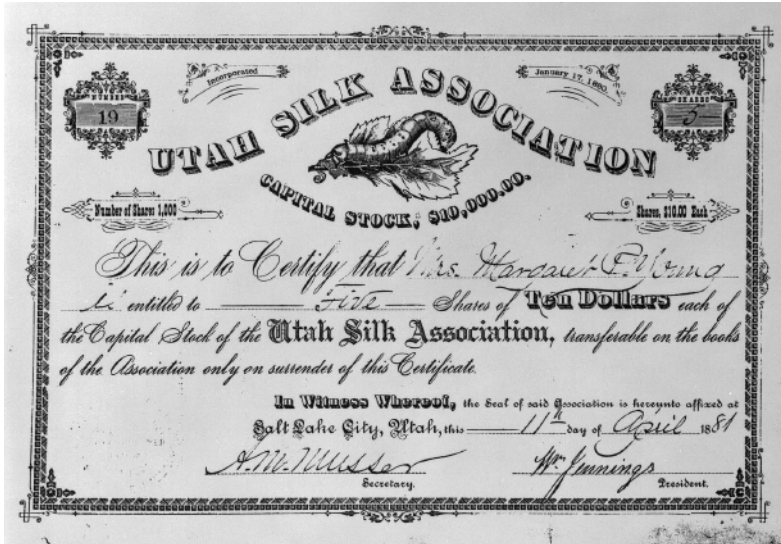 Incorporated
January 17, 1880.
NUMBER
19
SHARES
5
UTAH SILK ASSOCIATION
CAPITAL STOCK, $10,000.00.
Number of Shares 1,000
Shares, $10.00 Each
This is to Certify that Mrs. Margaret P. Young
is entitled to Five Shares of Ten Dollars each of
the Capital Stock of the Utah Silk Association, transferable on the books
of the Association only on surrender of this Certificate.
In Witness Whereof, the Seal of said Association is hereunto affixed at
Salt Lake City, Utah, this 11th day of April 1881
A. M. Musser Wm Jennings
Secretary. President.